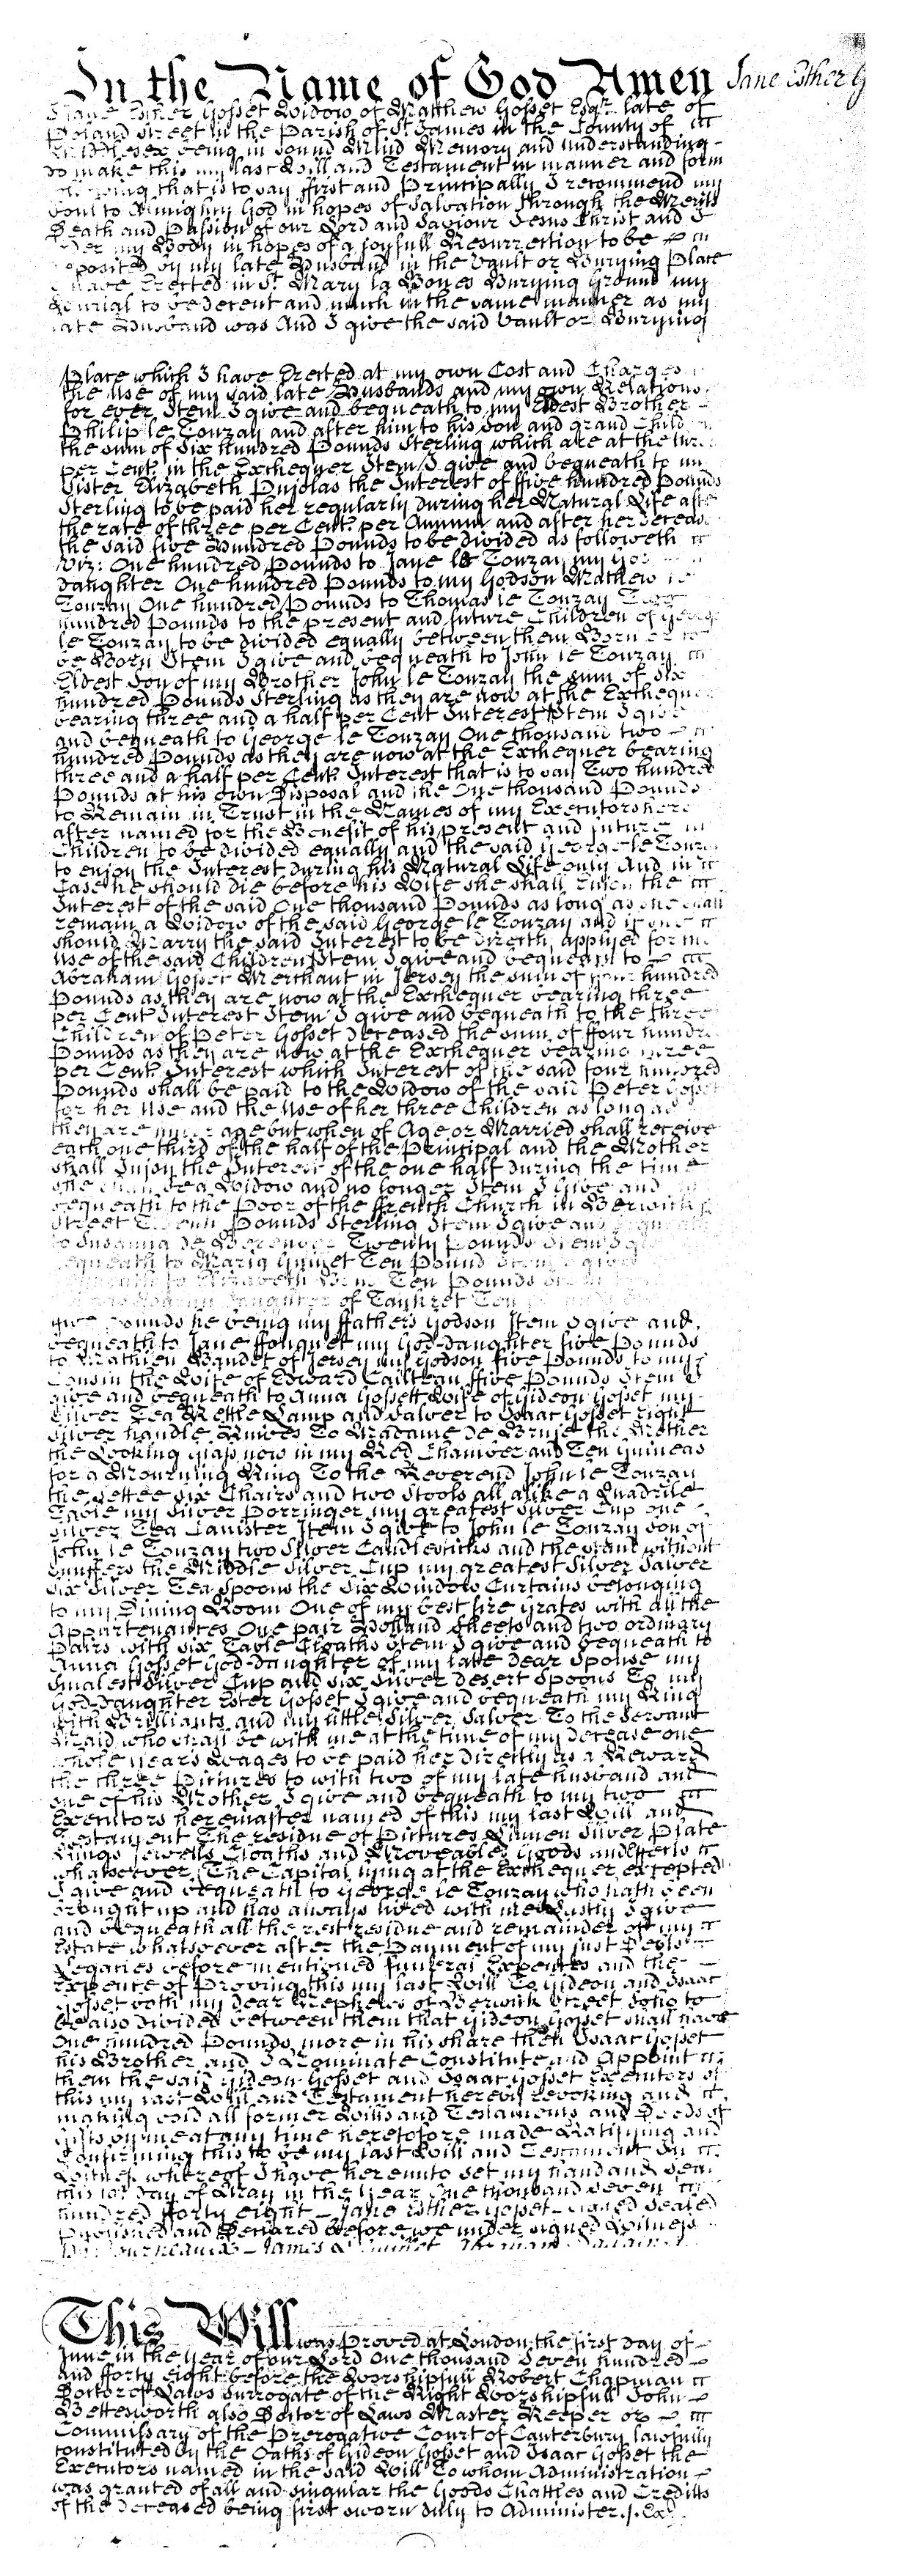 In the Name of God Amen Jane Esther G
Jane Esther Gosset Widow of Matthew Gosset Esqr. late of
Poland Street in the Parish of St James in the County of
Middlesex being in sound Mind Memory and understanding
do make this my last Will and Testament in manner and form
that is to say ffirst and Principally I recommend my
soul to Almighty God in hopes of Salvation through the Merits
Death and Passion of our Lord and Saviour Jesus Christ and I
my Body in hopes of a joyfull Resurrection to be
Deposited by my late Husband in the Vault or Burying Place
I have Erected in St. Mary la Bones Burying Ground my
Burial to be decent and much in the same manner as my
late Husband was And I give the said Vault or Burying
Place which I have Erected at my own Cost and Charges
the Use of my said late Husbands and my own Relations
for ever Item I give and bequeath to my Eldest Brother
Philip le Touzay and after him to his son and grand Child
the sum of Six hundred Pounds Sterling which are at the
per Cent. in the Exchequer Item I give and bequeath to my
Sister Elizabeth Pujolas the Interest of ffive hundred Pounds
Sterling to be paid her regularly during her Natural Life after
the rate of three per Cent. per Annum and after her decease
the said five Hundred Pounds to be divided as followeth
Viz: One hundred Pounds to Jane le Touzay my God
daughter One hundred Pounds to my Godson Mathew le
Touzay One hundred Pounds to Thomas le Touzay Two
hundred Pounds to the present and future Children of George
le Touzay to be divided equally between them Born or to
be Born Item I give and bequeath to John le Touzay
Eldest Son of my Brother John le Touzay the sum of Six
hundred Pounds Sterling as they are now at the Exchequer
bearing three and a half per Cent Interest Item I give
and bequeath to George le Touzay One thousand two
hundred Pounds as they are now at the Exchequer bearing
three and a half per Cent. Interest that is to say Two hundred
Pounds at his own Disposal and the One thousand Pounds
to Remain in Trust in the Names of my Executors here
after named for the Benefit of his present and future
Children to be divided equally and the said George le Touzay
to enjoy the Interest during his Natural Life only And in
Case he should die before his Wife she shall enjoy the
Interest of the said One thousand Pounds as long as she shall
remain a Widow of the said George le Touzay and if she
should Marry the said Interest to be directly applied for the
Use of the said Children Item I give and bequeath to
Abraham Gosset Merchant in Jersey the sum of four hundred
Pounds as they are now at the Exchequer bearing three
per Cent Interest Item I give and bequeath to the three
Children of Peter Gosset deceased the sum of ffour hundred
Pounds as they are now at the Exchequer bearing three
per Cent. Interest which Interest of the said four hundred
Pounds shall be paid to the Widow of the said Peter Gosset
for her Use and the Use of her three Children as long as
they are under age but when of Age or Married shall receive
each one third of the half of the Principal and the Mother
shall Injoy the Interest of the one half during the time
she shall be a Widow and no longer Item I Give and
bequeath to the Poor of the ffrench Church in Berwick
Street Pounds Sterling Item I give and bequeath
to Susanna de Twenty Pounds Item I give
bequeath to Maria Ten Pound Item I give
bequeath to Elizabeth Ten Pounds
daughter of Ten
give Pounds he being my ffathers Godson Item I give and
bequeath to Jane ffouquet my God-daughter five Pounds
to Mathieu Gaudet of Jersey my Godson five Pounds to my
Cousin the Wife of Edward ffive Pounds Item I
give and bequeath to Anna Gossett Wife of Gideon Gosset my
Silver Tea Kettle Lamp and Salver to Isaac Gosset Eight
Silver handle Knives To Madame De the Mother
the Looking Glass now in my Red Chamber and Ten Guineas
for a Mourning Ring To the Reverend John le Touzay
the Settee Six Chairs and two Stools all alike a Quadrile
Table my Silver Porringer my greatest Silver Cup one
Silver Tea Canister Item I give to John le Touzay son of
John le Touzay two Silver Candlesticks and the stand without
snuffers the Middle Silver Cup my greatest Silver Salver
six Silver Tea Spoons the Six Window Curtains belonging
to my Dining Room One of my best fire Grates with all the
Appartenances One pair Holland Sheets and two ordinary
Pairs with six Table Cloaths Item I give and bequeath to
Anna Gosset God-daughter of my late Dear Spouse my
smalest Silver Cup and six Silver Desert Spoons To my
God-daughter Ester Gosset I give and bequeath my Ring
with Brilliants and my little Silver Salver To the Servant
Maid who may be with me at the time of my Decease one
whole years Wages to be paid her Directly as a Reward
the three Pictures to with two of my late husband and
one of his Mother I give and bequeath to my two
Executors hereinafter named of this my last Will and
Testament The residue of Pictures Linnen Silver Plate
Rings Jewells Cloaths and Moveables Goods and Effects
whatsoever (The Capital lying at the Exchequer excepted)
I give and bequeath to George le Touzay who hath been
brought up and has always lived with me Lastly I give
and bequeath all the rest residue and remainder of my
Estate whatsoever after the Payment of my just Debts
Legacies before mentioned funeral Expences and the
Expence of Proving this my last Will To Gideon and Isaac
Gosset both my dear Nephews of Berwick Street Soho to
be also divided between them that Gideon Gosset shall have
One hundred Pounds more in his share then Isaac Gosset
his Brother and I Nominate Constitute and Appoint
them the said Gideon Gosset and Isaac Gosset Executors of
this my last Will and Testament hereby revoking and
making void all former Wills and Testaments and Deeds of
Gifts by me at any time heretofore made Ratifying and
Confirming this to be my last Will and Testament In
Witness whereof I have hereunto set my hand and Seal
this day of May in the Year One thousand seven
hundred fforty eight - Jane Esther Gosset - Signed Sealed
Published and Declared before we under signed Witness
James
This Will was Proved at London the first day of
June in the Year of our Lord One thousand Seven hundred
and fforty eight before the Worshipfull Robert Chapman
Doctor of Laws Surrogate of the Right Worshipfull John
Bettesworth also Doctor of Laws Master Keeper or
Commissary of the Prerogative Court of Canterbury lawfully
constituted by the Oaths of Gideon Gosset and Isaac Gosset the
Executors named in the said Will To whom Administration
was granted of all and singular the Goods Chattles and Credits
of the deceased being first sworn duly to Administer. Ex